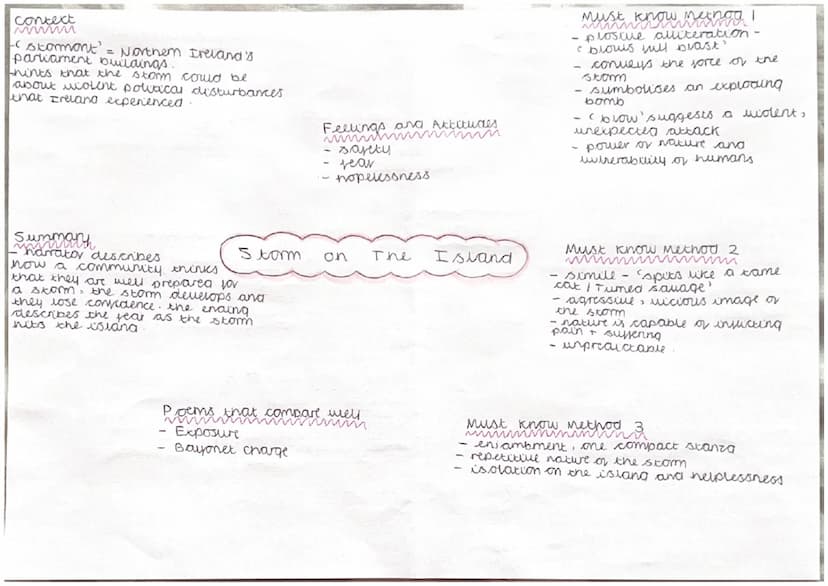 Context
- 'Stormont' = Northern Ireland's
parliament buildings.
- hints that the storm could be
about violent political disturbances
that Ireland experienced.
Must Know Method 1
- plosive alliteration -
'blows full blast'
- conveys the force of the
storm
- symbolises an exploding
bomb
- 'blow' suggests a violent,
unexpected attack
- power of nature and
vulnerability of humans
Feelings and Attitudes
- safety
- fear
- hopelessness
Summary
- narrator describes
how a community thinks
that they are well prepared for
a storm, the storm develops and
they lose confidence. the ending
describes the fear as the storm
hits the island.
Storm on The Island
Must Know Method 2
- simile - 'spits like a tame
cat / Turned savage'
- agressive, vicious image of
the storm
- nature is capable of inflicting
pain + suffering
- unpredictable.
Poems that compare well
- Exposure
- Bayonet Charge
Must Know Method 3
- enjambment, one compact stanza
- repetitive nature of the storm
- isolation on the island and helplessness